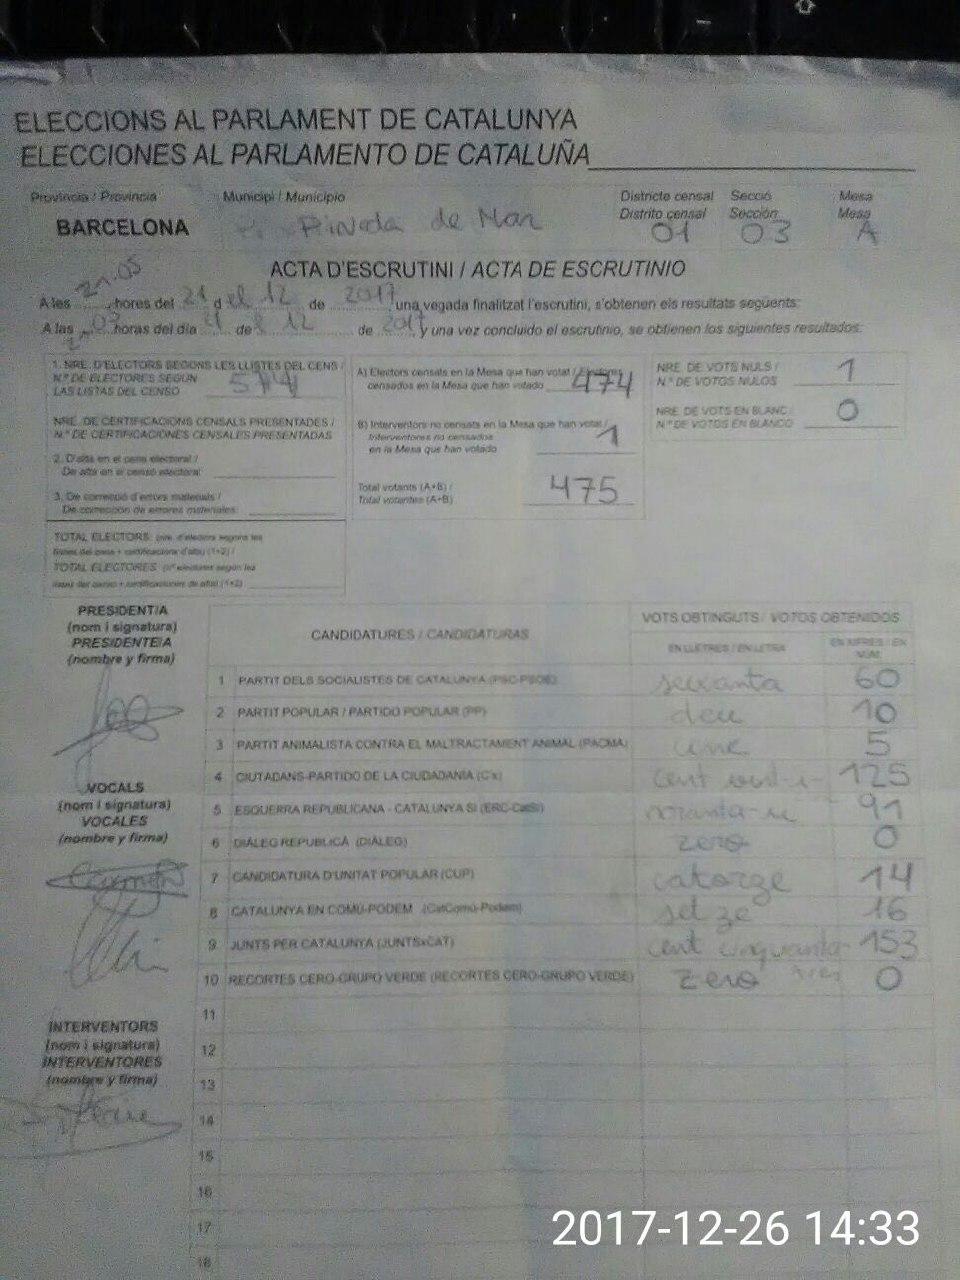 ELECCIONS AL PARLAMENT DE CATALUNYA
ELECCIONES AL PARLAMENTO DE CATALUÑA
Província / Provincia
Municipi / Municipio
Districte censal Secció Mesa
Distrito censal Sección Mesa
BARCELONA
Pineda de Mar
01 03 A
ACTA D'ESCRUTINI / ACTA DE ESCRUTINIO
A les 21.05 hores del 21 del 12 de 2017 una vegada finalitzat l'escrutini, s'obtenen els resultats següents:
A las horas del día de 12 de 2017 y una vez concluido el escrutinio, se obtienen los siguientes resultados:
1. NRE. D'ELECTORS SEGONS LES LLISTES DEL CENS /
N.º DE ELECTORES SEGÚN
LAS LISTAS DEL CENSO
NRE. DE CERTIFICACIONS CENSALS PRESENTADES /
N.º DE CERTIFICACIONES CENSALES PRESENTADAS
2. D'alta en el cens electoral /
De alta en el censo electoral:
3. De correcció d'errors materials /
De corrección de errores materiales:
TOTAL ELECTORS: (nre. d'electors segons les
llistes del cens + certificacions d'alta) (1+2) /
TOTAL ELECTORES: (nº electores según las
listas del censo + certificaciones de alta) (1+2)
A) Electors censats en la Mesa que han votat / Electores
censados en la Mesa que han votado 474
B) Interventors no censats en la Mesa que han votat /
Interventores no censados
en la Mesa que han votado 1
Total votants (A+B) /
Total votantes (A+B) 475
NRE. DE VOTS NULS /
N.º DE VOTOS NULOS 1
NRE. DE VOTS EN BLANC /
N.º DE VOTOS EN BLANCO 0
PRESIDENT/A
(nom i signatura)
PRESIDENTE/A
(nombre y firma)
VOCALS
(nom i signatura)
VOCALES
(nombre y firma)
INTERVENTORS
(nom i signatura)
INTERVENTORES
(nombre y firma)
CANDIDATURES / CANDIDATURAS
VOTS OBTINGUTS / VOTOS OBTENIDOS
EN LLETRES / EN LETRA
EN XIFRES / EN
NÚM.
1 PARTIT DELS SOCIALISTES DE CATALUNYA (PSC-PSOE) seixanta 60
2 PARTIT POPULAR / PARTIDO POPULAR (PP) deu 10
3 PARTIT ANIMALISTA CONTRA EL MALTRACTAMENT ANIMAL (PACMA) cinc 5
4 CIUTADANS-PARTIDO DE LA CIUDADANÍA (C's) cent vint-i 125
5 ESQUERRA REPUBLICANA - CATALUNYA SÍ (ERC-CatSí) noranta-u 91
6 DIÀLEG REPUBLICÀ (DIÀLEG) zero 0
7 CANDIDATURA D'UNITAT POPULAR (CUP) catorze 14
8 CATALUNYA EN COMÚ-PODEM (CatComú-Podem) setze 16
9 JUNTS PER CATALUNYA (JUNTSxCAT) cent cinquanta-tres 153
10 RECORTES CERO-GRUPO VERDE (RECORTES CERO-GRUPO VERDE) zero 0
11
12
13
14
15
16
17
18
2017-12-26 14:33